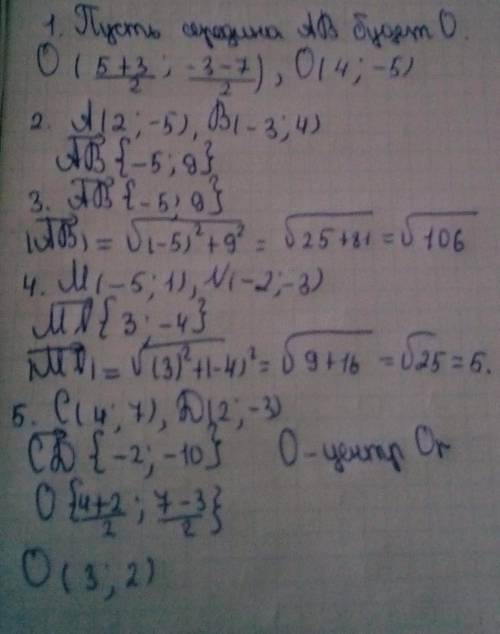 1. Пусть середина AB будет O.
O ( (5+3)/2 ; (-3-7)/2 ), O(4; -5)
2. A(2; -5), B(-3; 4)
AB {-5; 9}
3. AB {-5; 9}
|AB| = √((-5)²+9²) = √(25+81) = √106
4. M(-5; 1), N(-2; -3)
MN {3; -4}
|MN| = √((3)²+(-4)²) = √(9+16) = √25 = 5.
5. C(4; 7), D(2; -3)
CD {-2; -10} O-центр Or
O {(4+2)/2 ; (7-3)/2}
O (3; 2)